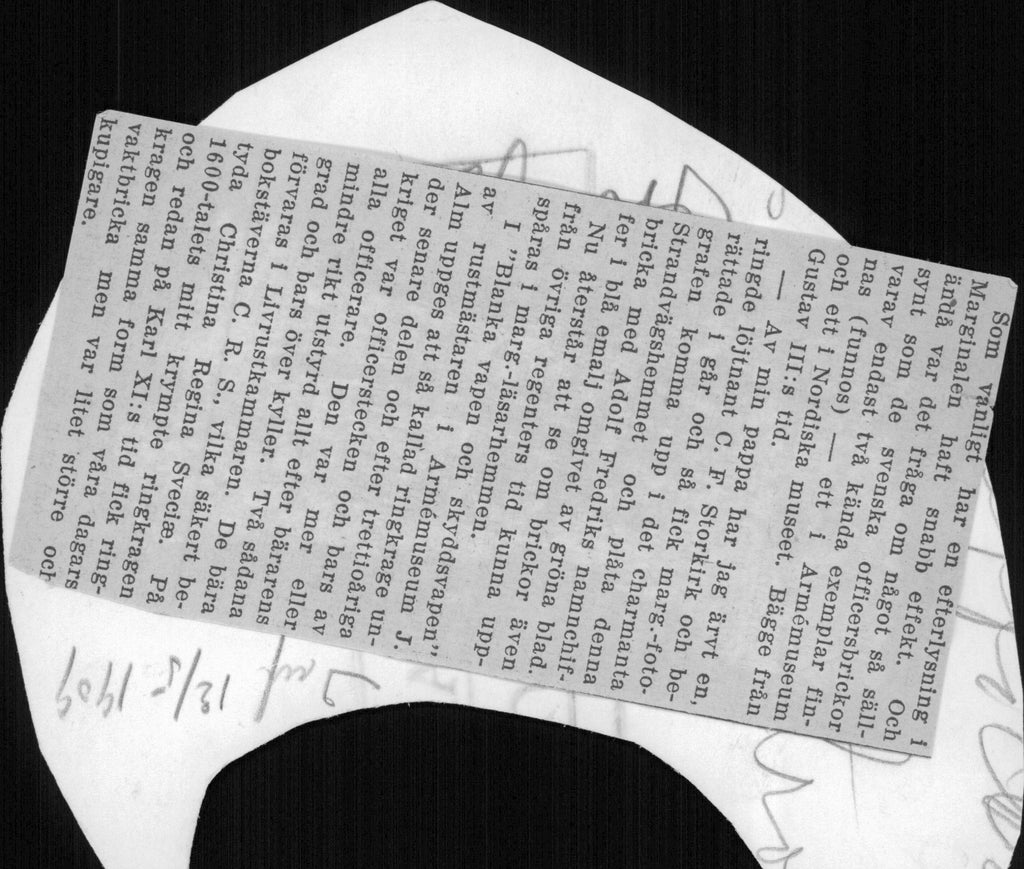 Som vanligt har en efterlysning i
Marginalen haft snabb effekt. Och
ändå var det fråga om något så säll-
synt som de svenska officersbrickor
varav endast två kända exemplar fin-
nas (funnos) — ett i Armémuseum
och ett i Nordiska museet. Bägge från
Gustav III:s tid.
— Av min pappa har jag ärvt en,
ringde löjtnant C. F. Storkirk och be-
rättade i går och så fick marg.-foto-
grafen komma upp i det charmanta
Strandvägshemmet och plåta denna
bricka med Adolf Fredriks namnchif-
fer i blå emalj omgivet av gröna blad.
Nu återstår att se om brickor även
från övriga regenters tid kunna upp-
spåras i marg.-läsarhemmen.
I "Blanka vapen och skyddsvapen"
av rustmästaren i Armémuseum J.
Alm uppges att så kallad ringkrage un-
der senare delen och efter tretioåriga
kriget var officerstecken och bars av
alla officerare. Den var mer eller
mindre rikt utstyrd allt efter bärarens
grad och bars över kyller. Två sådana
förvaras i Livrustkammaren. De bära
bokstäverna C. R. S., vilka säkert be-
tyda Christina Regina Sveciæ. På
1600-talets mitt krympte ringkragen
och redan på Karl XI:s tid fick ring-
kragen samma form som våra dagars
vaktbricka men var litet större och
kupigare.